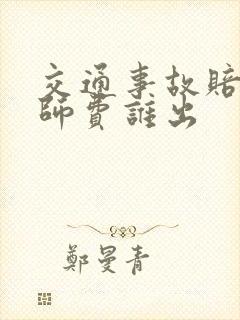 交通事故賠
師費誰出
鄭曼青